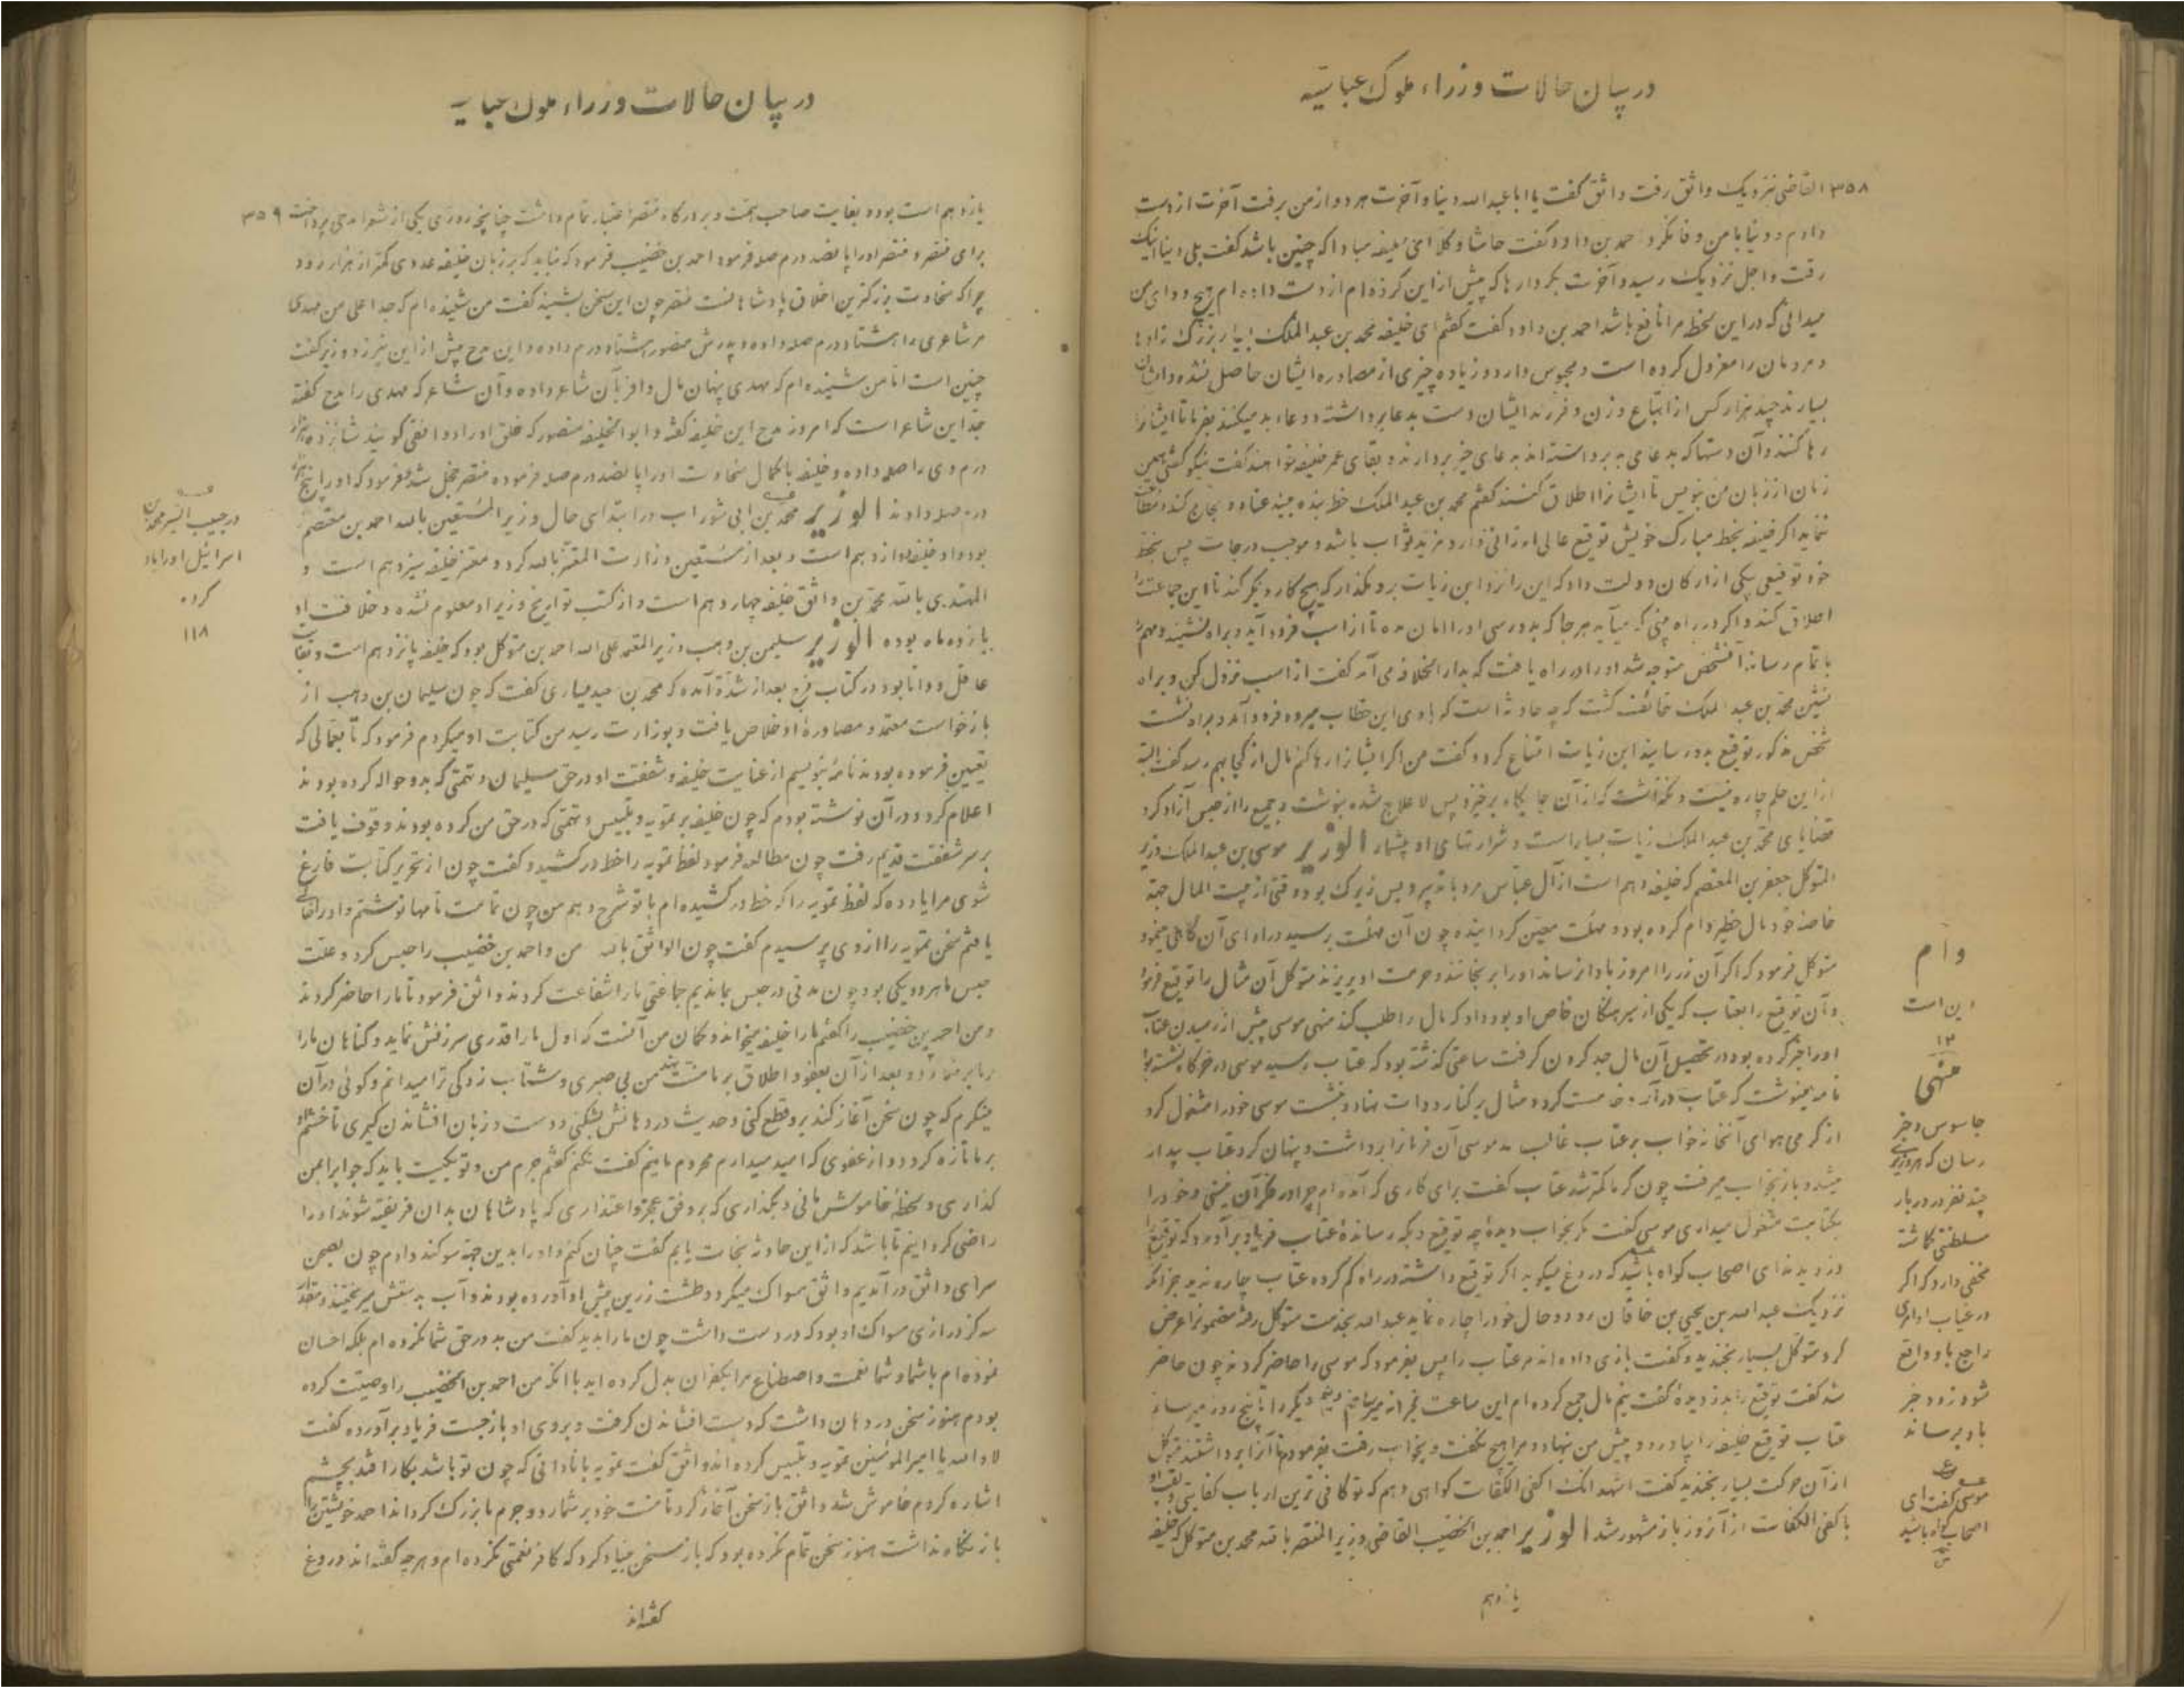 در بیان حالات وزراء ملوک عباسیه
۳۵۸ القاضی نزدیک واثق رفت واثق گفت یا اباعبدالله دنیا و آخرت هر دو از من برفت آخرت از دست
دادم و دنیا با من وفا نکرد احمد بن داود گفت حاشا و کلا امی خلیفه مبادا که چنین باشد گفت بلی دنیا اینک
رفت و اجل نزدیک رسید و آخرت بکردارها که پیش از این کرده‌ام از دست داده‌ام هیچ دوای من
میدانی که در این لحظه مرا نافع باشد احمد بن داود گفت گفتم ای خلیفه محمد بن عبدالملک بسیار بزرگ زادها
و مردمان را معزول کرده است و محبوس دارد و زیاده چیزی از مصادره ایشان حاصل نشده و ایشان
بسیارند چند هزار کس از اتباع و زن و فرزند ایشان دست بدعا برداشته و دعاء بد میکنند بفرما تا ایشانرا
رها کنند و آن دستها که بدعای بد برداشته‌اند بدعای خیر بردارند و بقای عمر خلیفه خواهند گفت نیکو گفتی همین
زمان از زبان من بنویس تا ایشانرا اطلاق کنند گفتم محمد بن عبدالملک خط بنده بیند عناد و لجاج کند
نماید اگر خلیفه بخط مبارک خویش توقیع عالی ارزانی دارد مزید ثواب باشد و موجب درجات پس بخط
خود توقیعی یکی از ارکان دولت داد که این را نزد ابن زیات بر و مگذار که هیچ کار دیگر کند تا این جماعت را
اطلاق کند و اگر در راه بینی که میآید هر جا که بدو رسی او را امان مده تا از اسب فرود آید و براه نشیند و مهم
باتمام رساند آنشخص متوجه شد او را در راه یافت که بدارالخلافه می‌آمد گفت از اسب نزول کن و براه
نشین محمد بن عبدالملک خائف گشت که چه حادثه است که با وی این خطاب میرود فرود آمد و براه نشست
شخص مذکور توقیع بدو رسانید ابن زیات امتناع کرد و گفت من اگر ایشانرا رها کنم مال از کجا بهم رسد گفت البته
از این حکم چاره نیست و نگذاشت که از آن جایگاه برخیزد پس لاعلاج شده بنوشت و جمیع را از حبس آزاد کرد
قضایای محمد بن عبدالملک زیات بسیار است و شرارتهای او بیشمار الوزیر موسی بن عبدالملک وزیر
المتوکل جعفر بن المعتصم که خلیفه دهم است از آل عباس مرد با تدبیر و بس زیرک بود وقتی از بیت المال جهة
خاصه خود مال خطیر وام کرده بود و مهلت معین گردانیده چون آن مهلت برسید در ادای آن کاهلی مینمود
متوکل فرمود که اگر آن زر را امروز ادا نرساند او را برنجانند و حرمت او بریزند متوکل آن مثال را توقیع فرمود
و آن توقیع را بعتاب که یکی از سرهنگان خاص او بود داد که مال را طلب کند منهی موسی پیش از رسیدن عتاب
او را خبر کرده بود در تحصیل آن مال جد کردن گرفت ساعتی گذشته بود که عتاب رسید موسی در خرگاه نشسته بود
نامه مینوشت که عتاب درآمد خدمت کرد و مثال بر کنار دوات نهاد و بنشست موسی خود را مشغول کرد
از گرمی هوای آنخانه خواب بر عتاب غالب شد موسی آن فرمانرا برداشت و پنهان کرد عتاب بیدار
میشد و باز بخواب میرفت چون گرما کمتر شد عتاب گفت برای کاری که آمده‌ام چرا در فکر آن نیستی و خود را
بکتابت مشغول میداری موسی گفت مگر بخواب دیدهٔ چه توقیع و که رساندهٔ عتاب فریاد برآورد که توقیع را
دزدیدند ای اصحاب گواه باشید که دروغ میگوید اگر توقیع داشته در راه گم کرده عتاب چاره ندید جز آنکه
نزدیک عبدالله بن یحیی بن خاقان رود و حال خود را چاره نماید عبدالله بخدمت متوکل رفته مضمونرا عرض
کرد متوکل بسیار بخندید و گفت بازی داده‌اند مر عتاب را پس بفرمود که موسی را حاضر کردند چون حاضر
شد گفت توقیع را بدزدیدهٔ گفت نیم مال جمع کرده‌ام این ساعت بخزانه میرسانم و نیم دیگر را تا پنج روز میرسانم
عتاب توقیع خلیفه را بیاورد و پیش من نهاد و مرا هیچ نگفت و بخواب رفت بفرمودم تا آنرا برداشتند متوکل
از آن حرکت بسیار بخندید گفت اشهد انک اکفی الکفات گواهی دهم که تو کافی ترین ارباب کفایتی و لقب او
باکفی الکفات از آنروز باز مشهور شد الوزیر احمد بن الخصیب القاضی وزیر المنتصر بالله محمد بن متوکل که خلیفه
یازدهم
وام
دین است
۱۲
منهی
جاسوس و خبر
رسان که هر وزیری
چند نفر در دربار
سلطنتی گماشته
مخفی دارد که اگر
در غیاب او امری
راجع باو واقع
شود زود خبر
باو برساند
موسی گفت ای
اصحاب گواه باشید
در بیان حالات وزراء ملوک عباسیه
یازدهم است بوده بغایت صاحب همت و بر درگاه منتصر اختیار تمام داشت چنانچه روزی یکی از شعرا مدحی پرداخت ۳۵۹
برای منتصر و منتصر او را پانصد درم صله فرمود احمد بن خصیب فرمود که نباید که بر زبان خلیفه عددی کمتر از هزار رود
چرا که سخاوت بزرگترین اخلاق پادشاهانست منتصر چون این سخن بشنید گفت من شنیده‌ام که جد اعلی من مهدی
مر شاعری را هشتاد درم صله داده و پدرش منصور هشتاد درم داده و این مدح پیش از این نیرزد وزیر گفت
چنین است اما من شنیده‌ام که مهدی پنهان مال وافر بآن شاعر داده و آن شاعر که مهدی را مدح گفته
جد این شاعر است که امروز مدح این خلیفه گفته و ابوالخلیفه منصور که خلق او را دوانقی گویند شانزده هزار
درم وی را صله داده و خلیفه با کمال سخاوت او را پانصد درم صله فرموده منتصر خجل شد بفرمود که او را پنج هزار
درم صله دادند الوزیر محمد بن ابی شوراب در ابتدای حال وزیر المستعین بالله احمد بن معتصم
بود و او خلیفه دوازدهم است و بعد از مستعین وزارت المعتز بالله کرد و معتز خلیفه سیزدهم است و
المهتدی بالله محمد بن واثق خلیفه چهاردهم است و از کتب تواریخ وزیر او معلوم نشده و خلافت او
یازده ماه بوده الوزیر سلیمن بن وهب وزیر المعتمد علی الله احمد بن متوکل بود که خلیفه پانزدهم است و بغایت
عاقل و دانا بود در کتاب فرج بعد از شدة آمده که محمد بن گفت که چون سلیمان بن وهب از
بازخواست معتمد و مصادرهٔ او خلاص یافت و بوزارت رسید من کتابت او میکردم فرمود که تا بعمالی که
تعیین فرموده بودند نامهٔ بنویسیم از عنایت خلیفه و شفقت او در حق سلیمان و تهمتی که بدو حواله کرده بودند
اعلام کرد و در آن نوشته بودم که چون خلیفه بر تمویه و تلبیس و تهمتی که در حق من کرده بودند وقوف یافت
بر سر شفقت قدیم رفت چون مطالعه فرمود لفظ تمویه را خط در کشید و گفت چون از تحریر کتابت فارغ
شوی مرا یاد ده که لفظ تمویه را که خط در کشیده‌ام با تو شرح دهم من چون تمامت نامها نوشتم و او را خالی
یافتم سخن تمویه را از وی پرسیدم گفت چون الواثق بالله من و احمد بن خصیب را حبس کرد و علت
حبس ما هر دو یکی بود چون مدتی در حبس بماندیم جماعتی ما را شفاعت کردند واثق فرمود تا ما را حاضر کردند
و من احمد بن خصیب را گفتم ما را خلیفه میخواند و گمان من آنست که اول ما را قدری سرزنش نماید و گناهان ما را
بر ما بر شمارد و بعد از آن بعفو و اطلاق بر ما منت نهد من بی صبری و شتاب زدگی ترا میدانم و گوئی در آن
مینگرم که چون سخن آغاز کند بر و قطع کنی و حدیث در دهانش بشکنی و دست و زبان افشاندن گیری تا خشم او
بر ما تازه گردد و از عفوی که امید میداریم محروم مانیم گفت نکنم گفتم جرم من و تو یکیست باید که جواب با من
گذاری و لحظهٔ خاموش مانی و بگذاری که بر وفق عجز و اعتذاری که پادشاهان بدان فریفته شوند او را
راضی گردانیم تا باشد که از این حادثه نجات یابیم گفت چنان کنم و او را بدین جهة سوگند دادم چون بصحن
سرای واثق درآمدیم واثق مسواک میکرد و طشت زرین پیش او آورده بودند و آب بدستش میریختند و مقدار
سه گز درازی مسواک او بود که در دست داشت چون ما را بدید گفت من بد در حق شما نکرده‌ام بلکه احسان
نموده‌ام با شما و شما نعمت و اصطناع مرا بکفران بدل کرده‌اید با آنکه من احمد بن الخصیب را وصیت کرده
بودم هنوز سخن در دهان داشت که دست افشاندن گرفت و بروی او بازجست فریاد برآورده گفت
لا والله یا امیرالمؤمنین تمویه و تلبیس کرده‌اند واثق گفت تمویه با نادانی که چون تو باشد بکار افتد بچشم
اشاره کردم خاموش شد واثق باز سخن آغاز کرد تا منت خود بر شمارد و جرم ما بزرگ گرداند احمد خویشتن را
باز نگاه نداشت هنوز سخن تمام نکرده بود که باز سخن بنیاد کرد که کافر نعمتی نکرده‌ام و هرچه گفته‌اند دروغ
گفته‌اند
در حبیب السیر محمد بن
اسرائیل او را یاد
کرده
۱۱۸